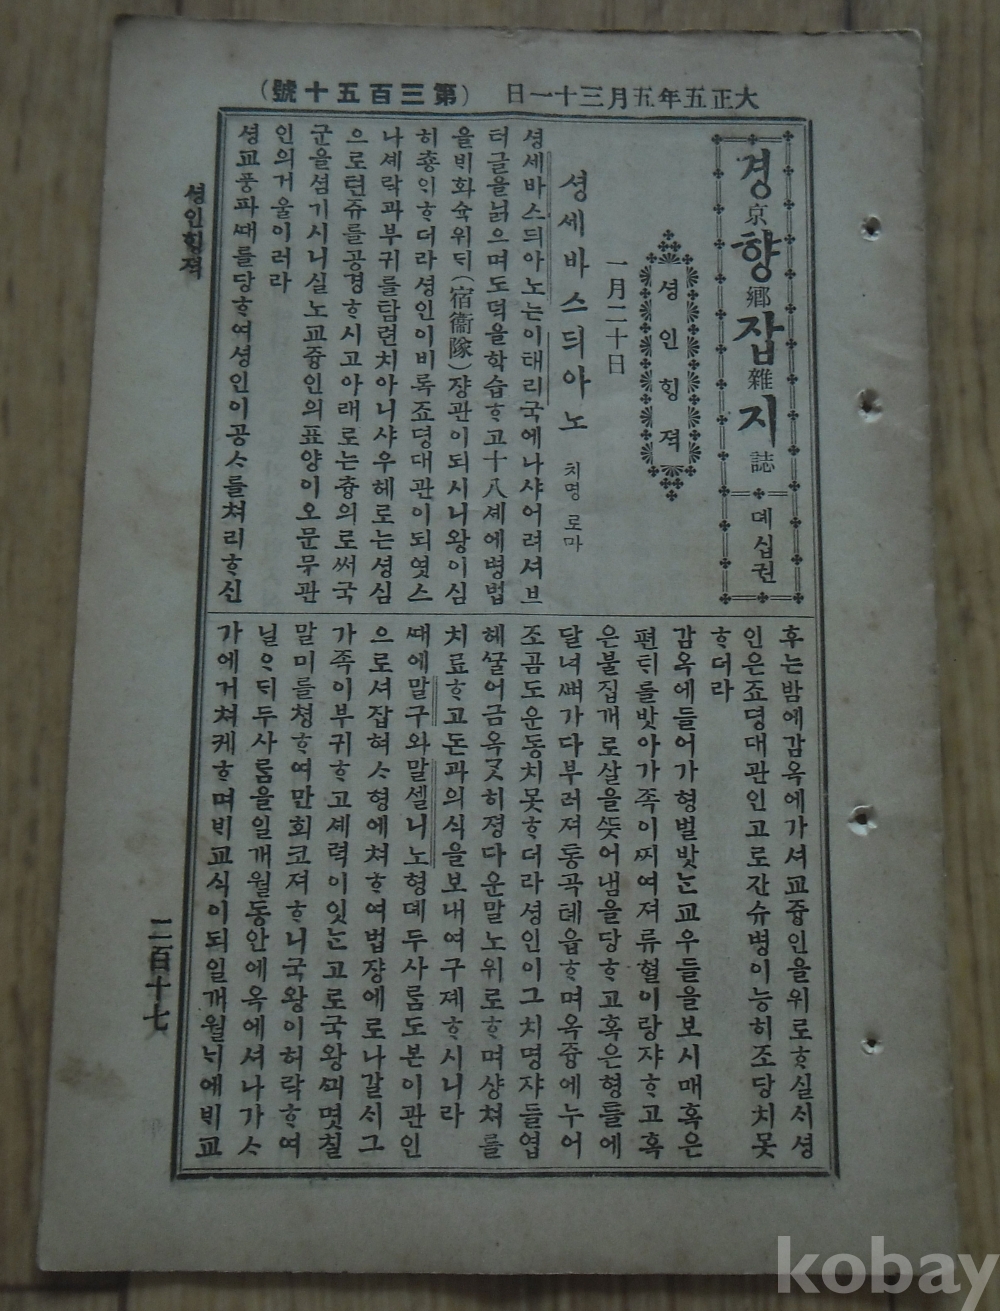 大正五年五月三十一日 (第三百五十號)
경京향鄕잡雜지誌 뎨십권
셩인ᄒᆡᆼ젹
一月二十日
셩세바스듸아노 치명 로마
셩세바스듸아노는이태리국에나샤어려셔브
터글을닑으며도덕을학습ᄒᆞ고十八셰에병법
을ᄇᆡ화슉위ᄃᆡ(宿衞隊)쟝관이되시니왕이심
히춍ᄋᆡᄒᆞ더라셩인이비록죠뎡대관이되엿스
나셰락과부귀를탐련치아니샤우헤로는셩심
으로텬쥬를공경ᄒᆞ시고아래로는츙의로써국
군을섬기시니실노교즁인의표양이오문무관
인의거울이러라
셩교풍파ᄯᅢ를당ᄒᆞ여셩인이공ᄉᆞ를쳐리ᄒᆞ신
후는밤에감옥에가셔교즁인을위로ᄒᆞ실ᄉᆡ셩
인은죠뎡대관인고로잔슈병이능히조당치못
ᄒᆞ더라
감옥에들어가형벌밧ᄂᆞᆫ교우들을보시매혹은
편ᄐᆡ를밧아가족이ᄶᅵ여져류혈이랑쟈ᄒᆞ고혹
은불집개로살을ᄯᅳᆺ어냄을당ᄒᆞ고혹은형틀에
달녀ᄲᅧ가다부러져통곡톄읍ᄒᆞ며옥즁에누어
조곰도운동치못ᄒᆞ더라셩인이그치명쟈들엽
헤ᄭᅮᆯ어금옥ᄀᆞᆺ히졍다운말노위로ᄒᆞ며샹쳐를
치료ᄒᆞ고돈과의식을보내여구졔ᄒᆞ시니라
ᄯᅢ에말구와말셀니노형뎨두사ᄅᆞᆷ도본이관인
으로셔잡혀ᄉᆞ형에쳐ᄒᆞ여법쟝에로나갈ᄉᆡ그
가족이부귀ᄒᆞ고셰력이잇ᄂᆞᆫ고로국왕ᄭᅴ몃칠
말미를쳥ᄒᆞ여만회코져ᄒᆞ니국왕이허락ᄒᆞ여
닐ᄋᆞᄃᆡ두사ᄅᆞᆷ을일개월동안에옥에셔나가ᄉᆞ
가에거쳐케ᄒᆞ며ᄇᆡ교식이되일개월ᄂᆡ에ᄇᆡ교
셩인ᄒᆡᆼ젹
二百十七
kobay